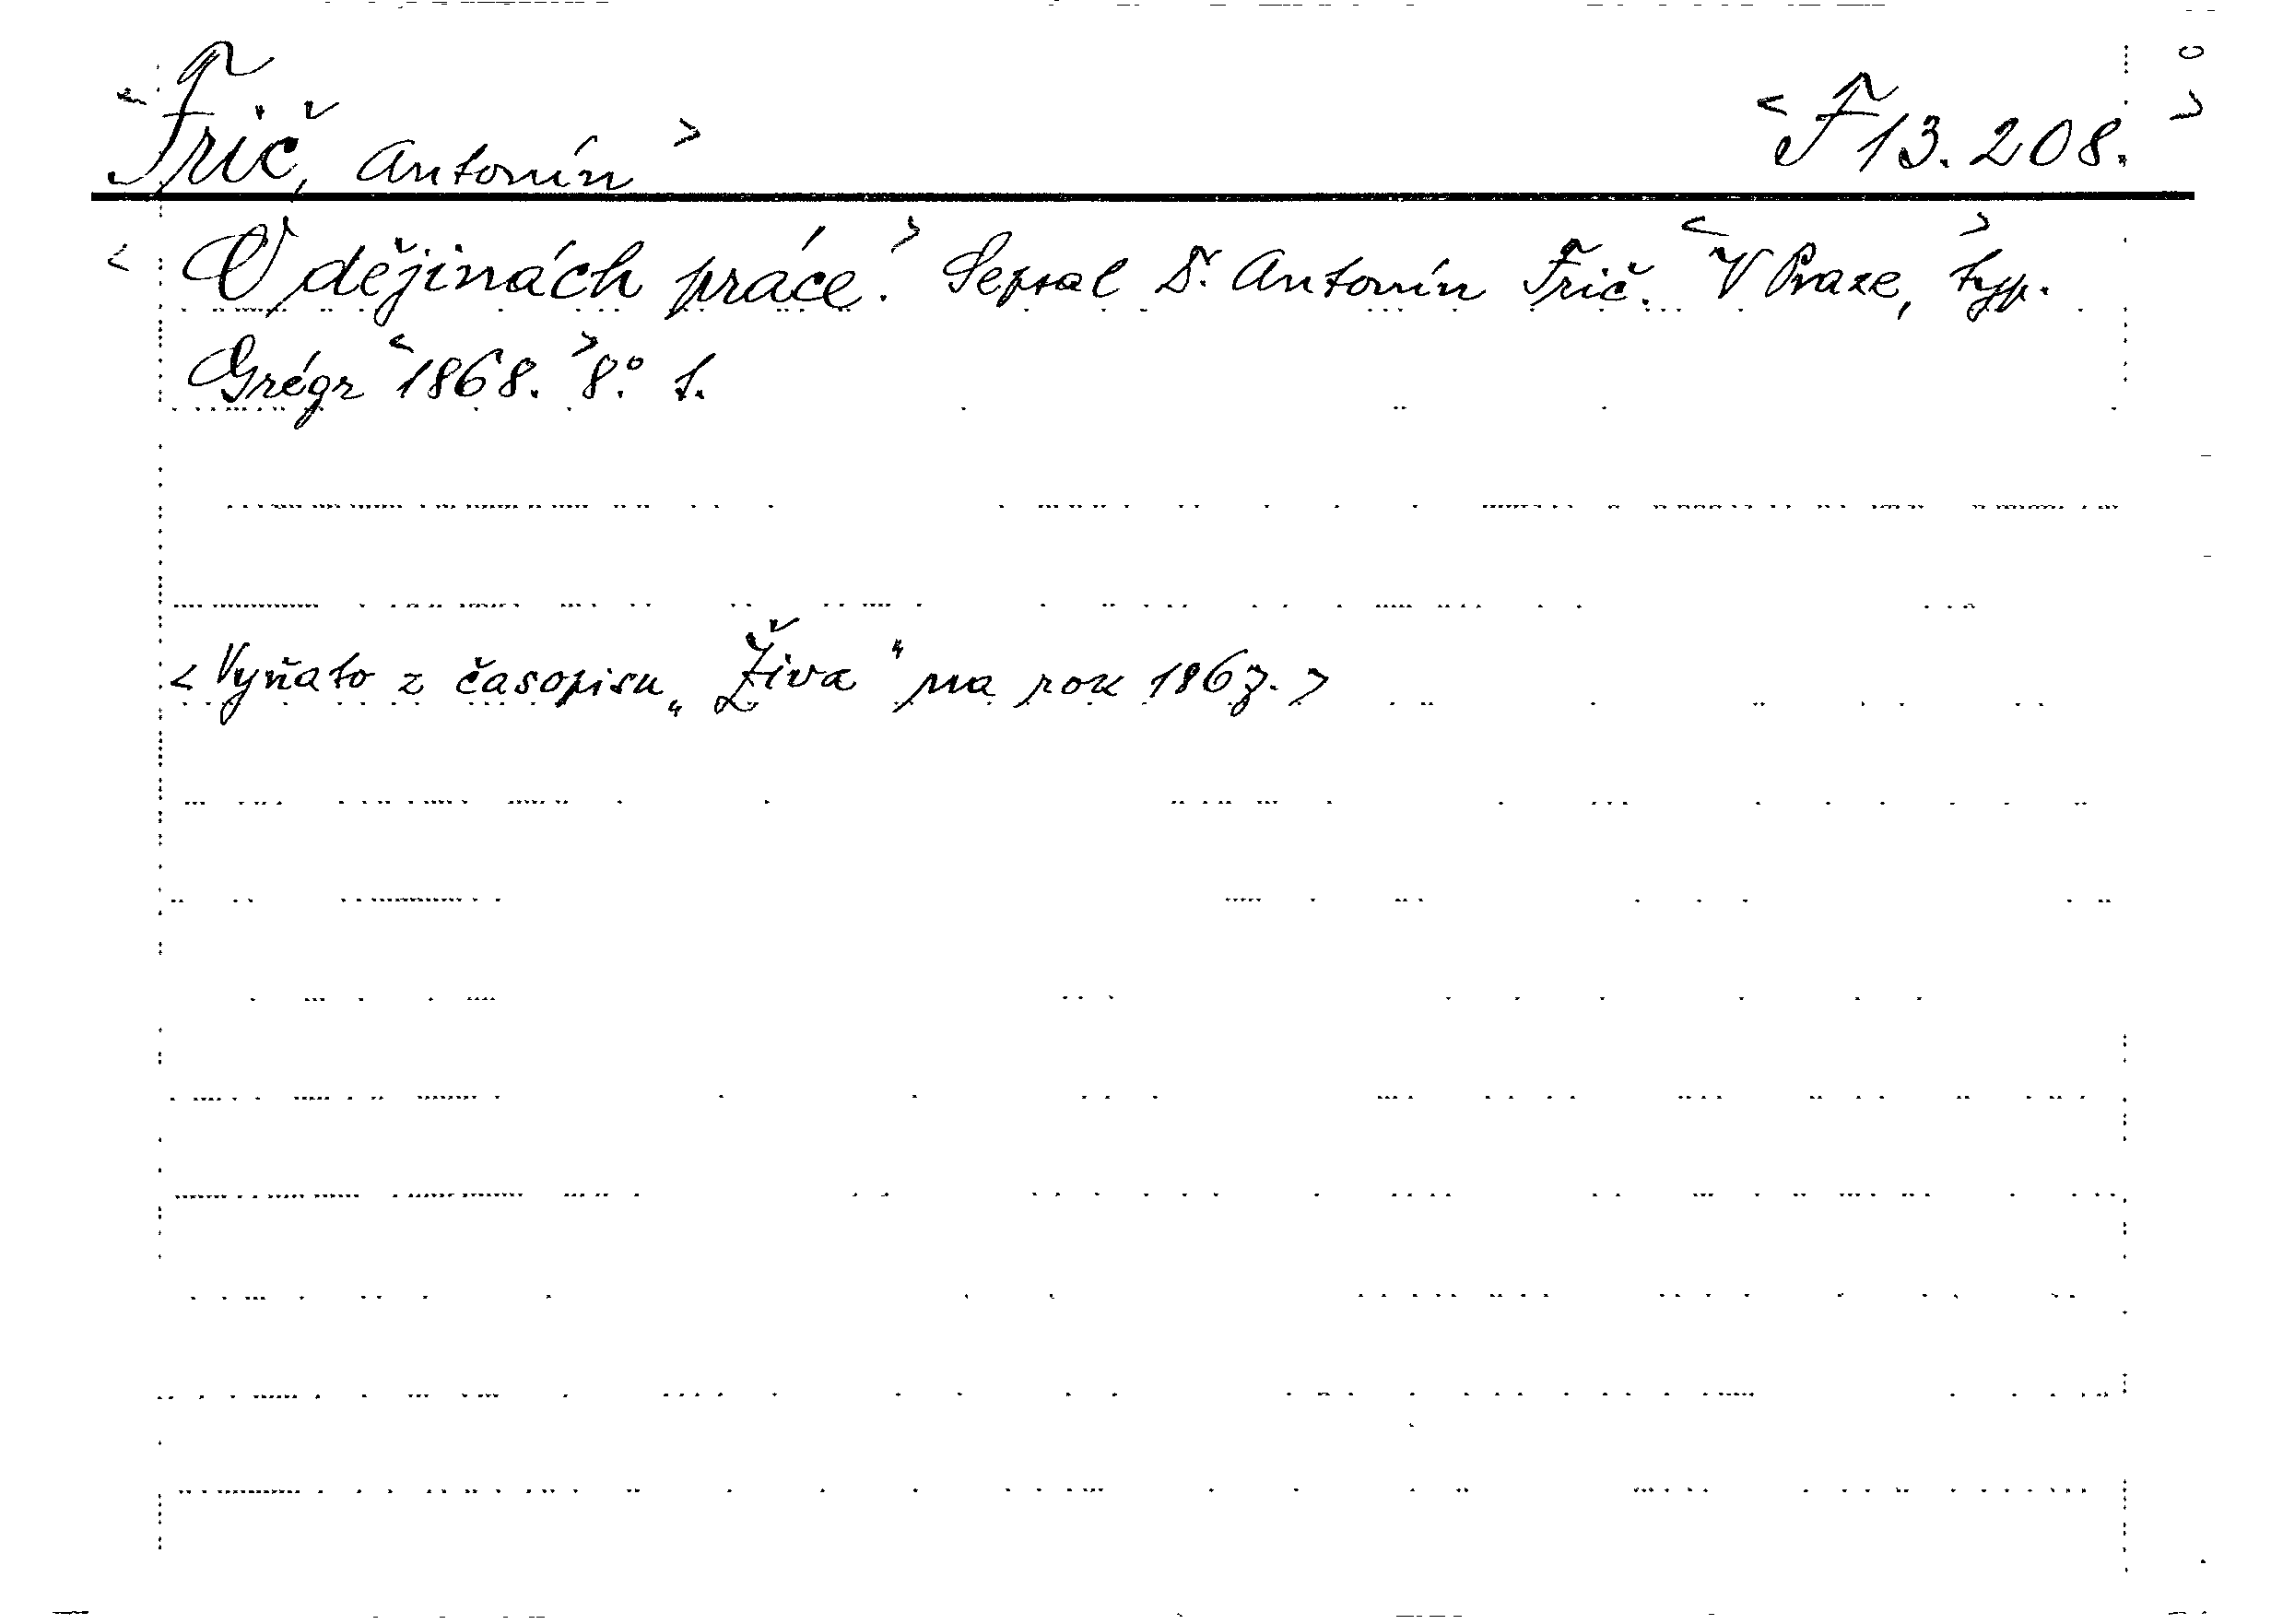 <Frič, Antonín> <F 13.208.>
<O dějinách práce.> Sepsal Dr. Antonín Frič. <V Praze,> typ.
Grégr <1868.> 8.° 1.
<Vyňato z časopisu „Živa" na rok 1867.>